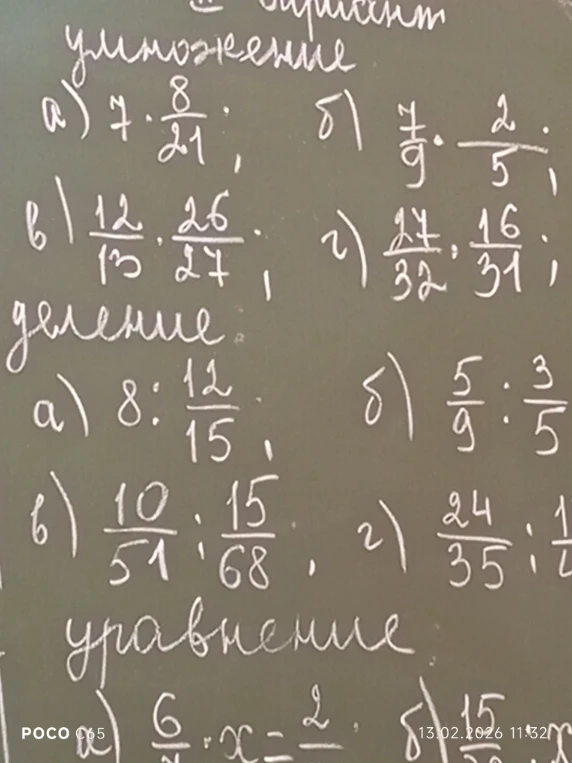 II вариант
умножение
а) 7 · 8/21; б) 7/9 · 2/5;
в) 12/13 · 26/27; г) 27/32 · 16/31;
деление
а) 8 : 12/15, б) 5/9 : 3/5
в) 10/51 : 15/68, г) 24/35 :
уравнение
а) 6/ · x = 2/ б) 15/
POCO C65 13.02.2026 11:32